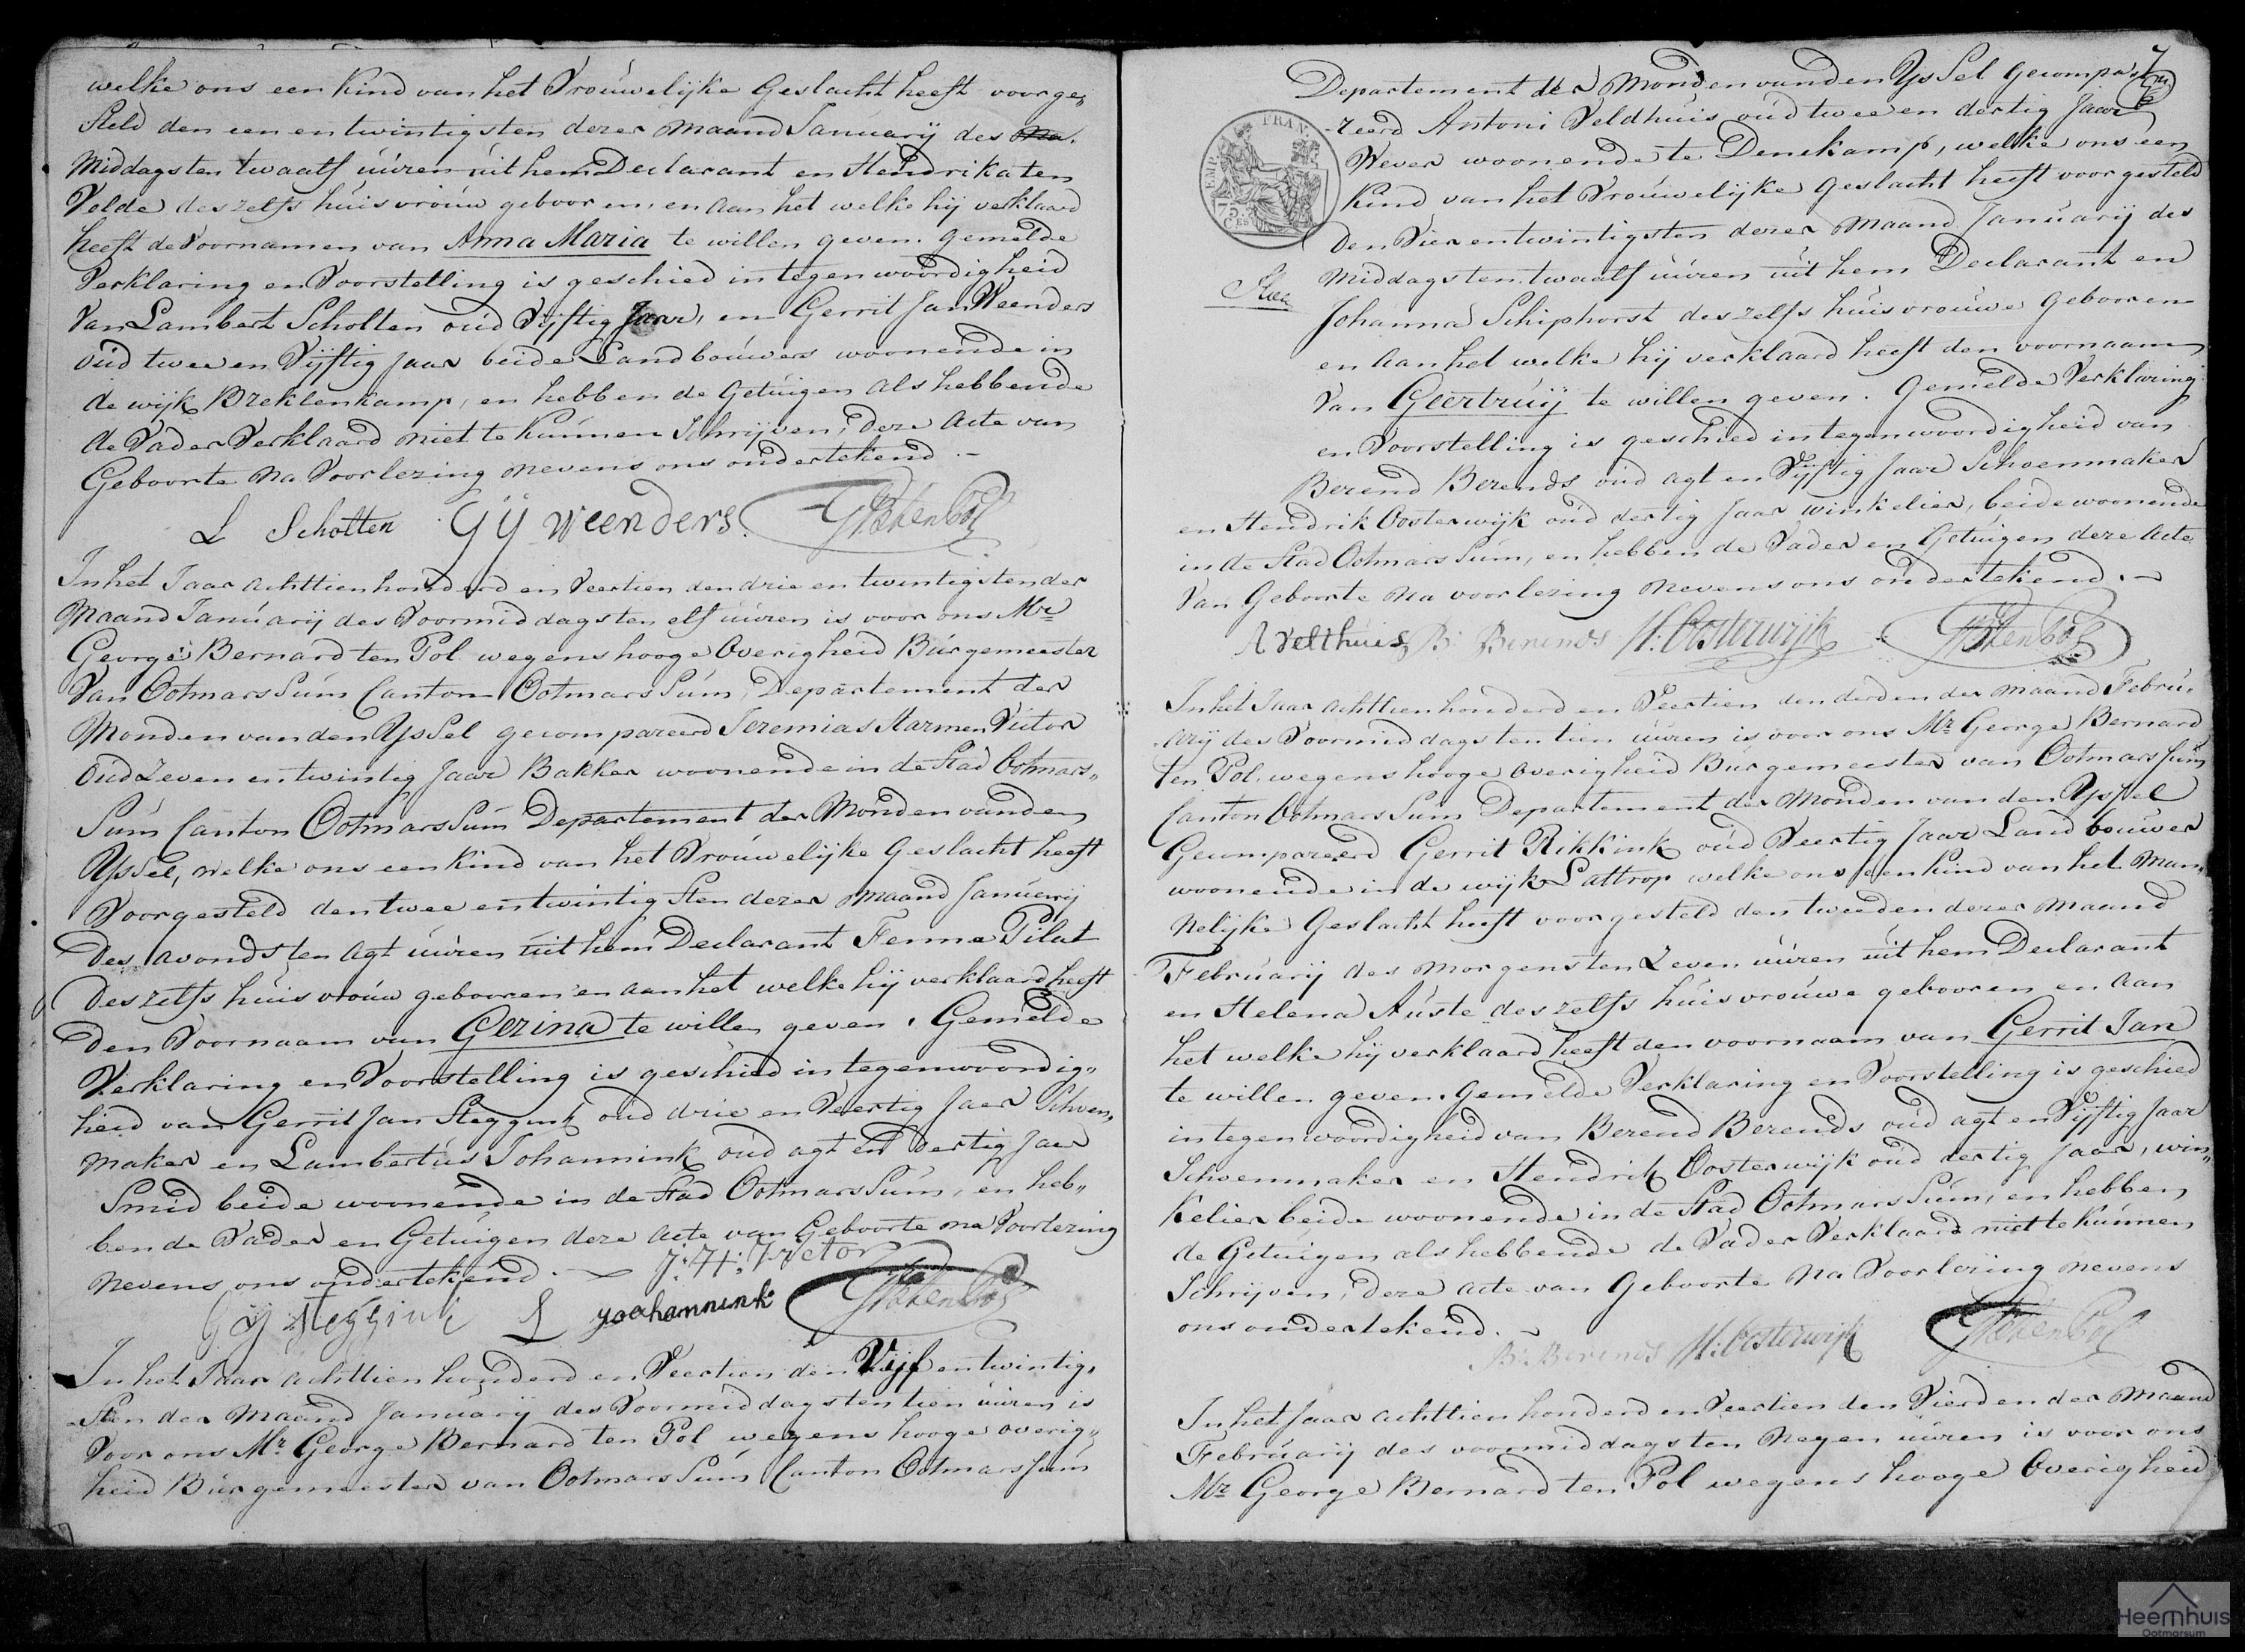 welke ons een Kind van het Vrouwelijke Geslacht heeft voorge„
steld den een en twintigsten dezer Maand Januarij des Na.
Middags ten twaalf uuren uit hem Declarant en Hendrika ten
Velde deszelfs huisvrouw gebooren, en aan het welke hij verklaard
heeft de Voornamen van Anna Maria te willen geven. Gemelde
Verklaring en Voorstelling is geschied in tegenwoordigheid
Van Lambert Scholten oud Vijftig Jaar, en Gerrit Jan Weenders
oud twee en Vijftig Jaar beide Landbouwers woonende in
de wijk Breklenkamp, en hebben de Getuigen als hebbende
de Vader Verklaard niet te kunnen Schrijven, deze Acte van
Geboorte na Voorlezing nevens ons ondertekend.-
L Scholten GJ Weenders. GBtenPol
In het Jaar Achttienhonderd en Veertien den drie en twintigsten der
Maand Januarij des Voormiddags ten elf uuren is voor ons Mr
George Bernard ten Pol wegens hooge Overigheid Burgemeester
Van OotmarsSum Canton OotmarsSum, Departement der
Monden van den YsSel gecompareerd Jeremias Harmen Victor
Oud Zeven en twintig Jaar Bakker woonende in de Stad Ootmars„
Sum Canton OotmarsSum Departement der Monden van den
YsSel, welke ons een Kind van het Vrouwelijke Geslacht heeft
Voorgesteld den twee en twintigsten dezer Maand Januarij
des Avonds ten Agt uuren uit hem Declarant Fenne Pilat
deszelfs huisvrouw gebooren en aan het welke hij verklaard heeft
den Voornaam van Gezina te willen geven. Gemelde
Verklaring en Voorstelling is geschied in tegenwoordig„
heid van Gerrit Jan Steggink oud drie en Veertig Jaar Schoen„
maker en Lambertus Johannink oud agt en dertig Jaar
Smid beide woonende in de Stad OotmarsSum, en heb„
ben de Vader en Getuigen deze Acte van Geboorte na Voorlezing
nevens ons ondertekend. - J:H: Victor
GJ Steggink L yoahannink GBtenPol
In het Jaar Achttien honderd en Veertien den Vijf en twintig„
Sten der Maand Januarij des Voormiddags ten tien uuren is
Voor ons Mr George Bernard ten Pol wegens hooge overig„
heid Burgemeester van OotmarsSum Canton OotmarsSum
7
Departement der Monden van den YsSel Gecompa„
EMP. FRAN.
75 CES
reerd Antoni Veldhuis oud twee en dertig Jaar
Wever woonende te Denekamp, welke ons een
Kind van het Vrouwelijke Geslacht heeft voorgesteld
den Vier en twintigsten dezer Maand Januarij des
Middags ten twaalf uuren uit hem Declarant en
Johanna Schiphorst deszelfs huisvrouwe Gebooren
en aan het welke hij verklaard heeft den voornaam
Van Geertruij te willen geven. Gemelde Verklaring
en Voorstelling is geschied in tegenwoordigheid van
Berend Berends oud agt en Vijftig Jaar Schoenmaker
en Hendrik Oosterwijk oud dertig Jaar winkelier, beide woonende
in de Stad OotmarsSum, en hebben de Vader en Getuigen deze Acte
Van Geboorte na voorlezing nevens ons ondertekend.-
A Velthuis B: Berends H: Oosterwijk GBtenPol
In het Jaar Achttienhonderd en Veertien den derden der Maand Febru„
arij des Voormiddags ten tien uuren is voor ons Mr George Bernard
ten Pol wegens hooge overigheid Burgemeester van OotmarsSum
Canton OotmarsSum Departement der Monden van den YsSel
Gecompareerd Gerrit Rikkink oud Veertig Jaar Landbouwer
woonende in de wijk Lattrop welke ons een Kind van het Man„
nelijke Geslacht heeft voorgesteld den tweeden dezer Maand
Februarij des Morgens ten Zeven uuren uit hem Declarant
en Helena Auste deszelfs huisvrouwe gebooren en aan
het welke hij verklaard heeft den voornaam van Gerrit Jan
te willen geven. Gemelde Verklaring en Voorstelling is geschied
in tegenwoordigheid van Berend Berends oud agt en Vijftig Jaar
Schoenmaker en Hendrik Oosterwijk oud dertig Jaar, win„
kelier beide woonende in de Stad OotmarsSum, en hebben
de Getuigen als hebbende de Vader Verklaard niet te kunnen
Schrijven, deze Acte van Geboorte na Voorlezing nevens
ons ondertekend.-
B: Berends H: Oosterwijk GBtenPol
In het Jaar Achttien honderd en Veertien den Vierden der Maand
Februarij des voormiddags ten Negen uuren is voor ons
Mr George Bernard ten Pol wegens hooge Overigheid
Heemhuis
Ootmarsum